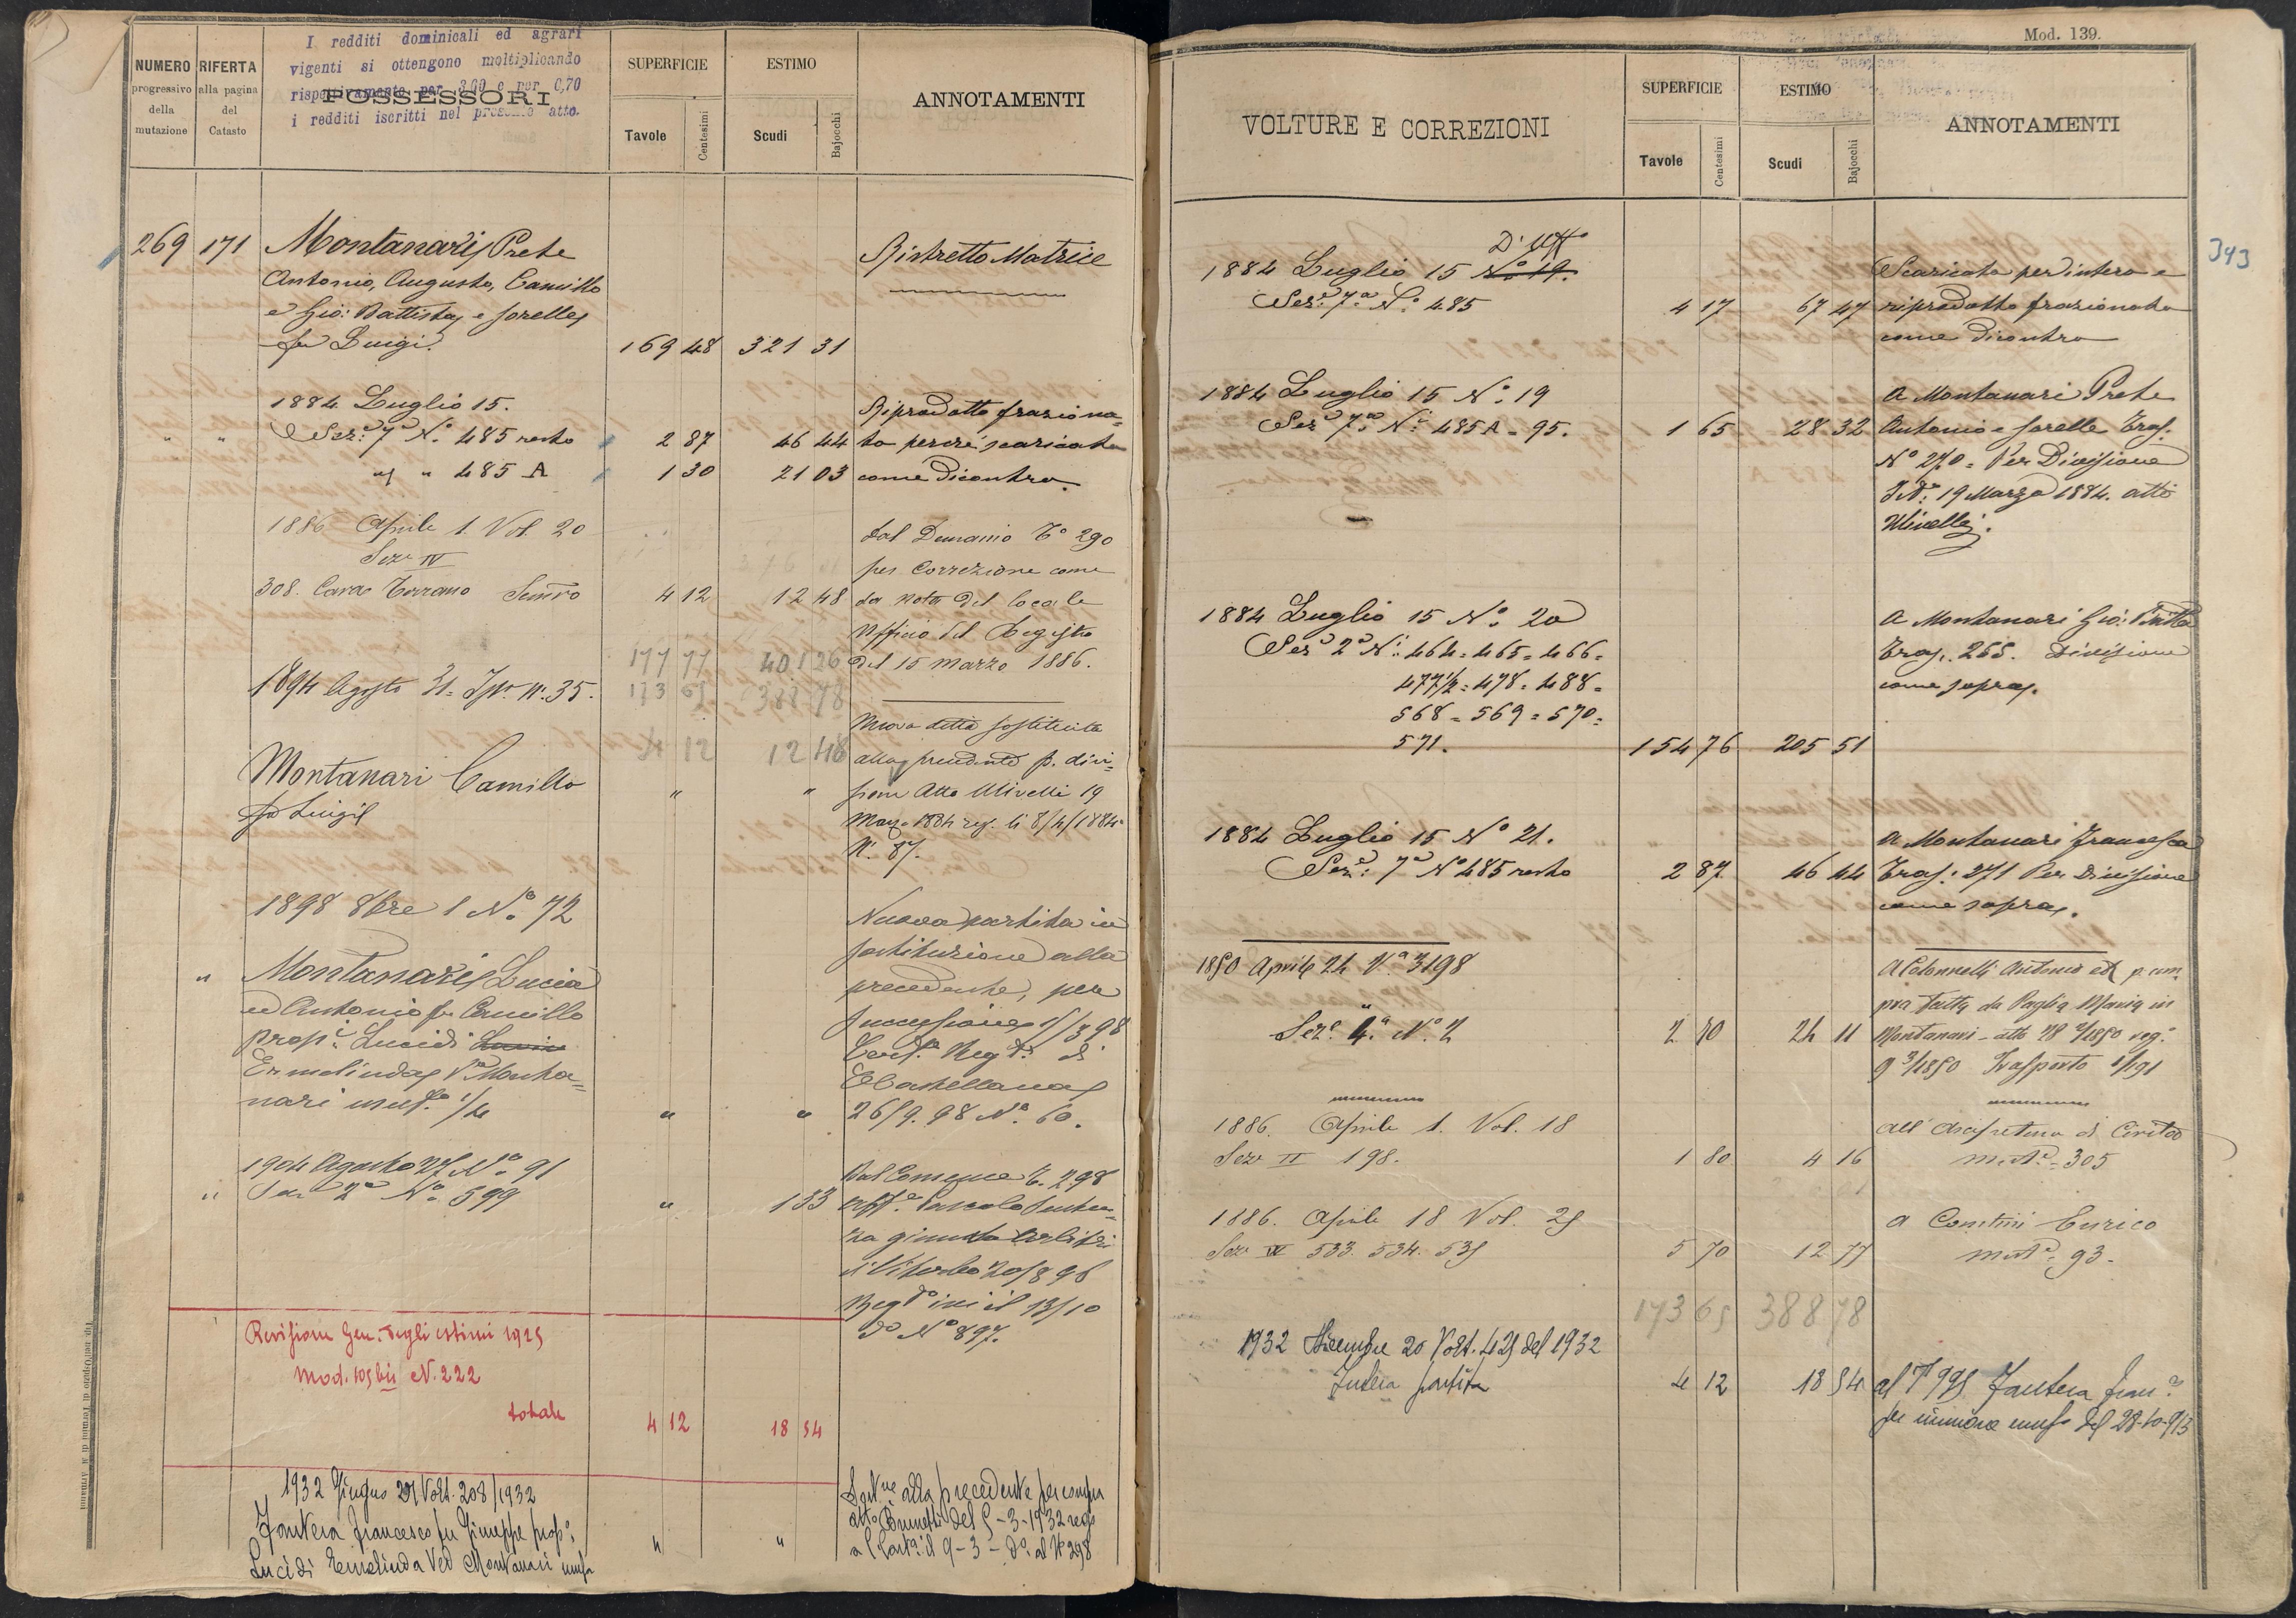 I redditi dominicali ed agrari
vigenti si ottengono moltiplicando
rispettivamente per 3,00 e per 0,70
i redditi iscritti nel presente atto.
NUMERO progressivo della mutazione
RIFERTA alla pagina del Catasto
POSSESSORI
SUPERFICIE
Tavole Centesimi
ESTIMO
Scudi Bajocchi
ANNOTAMENTI
269 171 Montanari Prete Ristretto Matrice
Antonio, Augusto, Camillo
e Gio: Battista e sorelle
fu Luigi. 169 48 321 31
1884 Luglio 15. Riprodotto fraziona=
" " Sez.e 7a No. 485 resto 2 87 46 44 to perchè scaricato
" " 485 A 1 30 21 03 come dicontro.
1886 Aprile 1. Vol. 20 dal Demanio To 290
Sez IV per Correzione come
308. Terreno Semvo 4 12 12 48 da nota del locale
Ufficio del Registro
177 77 401 26 del 15 marzo 1886.
1894 Agosto 31. No. 35. 173 65 388 78
Nuova ditta sostituita
4 12 12 48 alla precedente p. divi=
Montanari Camillo " " sione Atto Ulivelli 19
fu Luigi Marzo 1884 reg. li 8/4/1884
N. 87.
1898 8bre 1 No. 72 Nuova partita in
sostituzione alla
" Montanari Lucia precedente, per
ed Antonio fu Camillo successione
propi. Lucidi
Ermelinda Va Monta=
nari usufa. 1/4 " " 26/9.98 No. 60.
1904 Agosto 27 No. 91 Dal Comune T. 298
" Sez 2a No. 599 " 1 33
20/8 98
Regto ivi il 13/10
do No 897.
Revisione Gen. degli estimi 1925
Mod. 105 bis N. 222
totale 4 12 18 54
1932 Giugno Volt. 208/1932 alla precedente per compra
Fantera Francesco fu Giuseppe propo. atto Brunetti del 5-3-1932 rego
Lucidi Ermelinda Ved Montanari usufa " " a C. il 9-3-do. al No 298
Tip. dell'Ospizio di Termini di A. Armanni
Mod. 139.
343
VOLTURE E CORREZIONI
SUPERFICIE
Tavole Centesimi
ESTIMO
Scudi Bajocchi
ANNOTAMENTI
D'Uffo
1884 Luglio 15 No. 19. Scaricato per intero e
Sez.e 7a No. 485 4 17 67 47 riprodotto frazionato
come dicontro
1884 Luglio 15 No. 19 A Montanari Prete
Sez.e 7a No. 485 A - 95. 1 65 28 32 Antonio e sorelle Tras.
No 270 = Per Divisione
19 Marzo 1884. atto
Ulivelli.
1884 Luglio 15 No. 20 A Montanari Gio: Batta
Sez.e 2a N. 464 = 465 = 466 = Tras. 265. Divisione
477 1/2 = 478 = 488 = come sopra.
568 = 569 = 570 =
571. 154 76 205 51
1884 Luglio 15 No 21. A Montanari Francesca
Sez.e 7a No 485 resto 2 87 46 44 Tras: 271 Per Divisione
come sopra.
Aprile 24 3198 A Colonnelli Antonio p. com
pra fatta da Paglia Maria in
Sez.e 4a No. 2 2 70 24 11 Montanari - atto
Trasporto
1886. Aprile 1. Vol. 18 All'Arcipretura di Civita
Sez II 198. 1 80 4 16 mutae. 305
1886. Aprile 18 Vol. 25 A Enrico
Sez IV 533. 534. 535 5 70 12 77 mutae. 93.
173 65 388 78
1932 Dicembre 20 Volt. 425 del 1932
Intera partita 4 12 18 54 al T 995 Fantera Franco.
per riunione usufo del